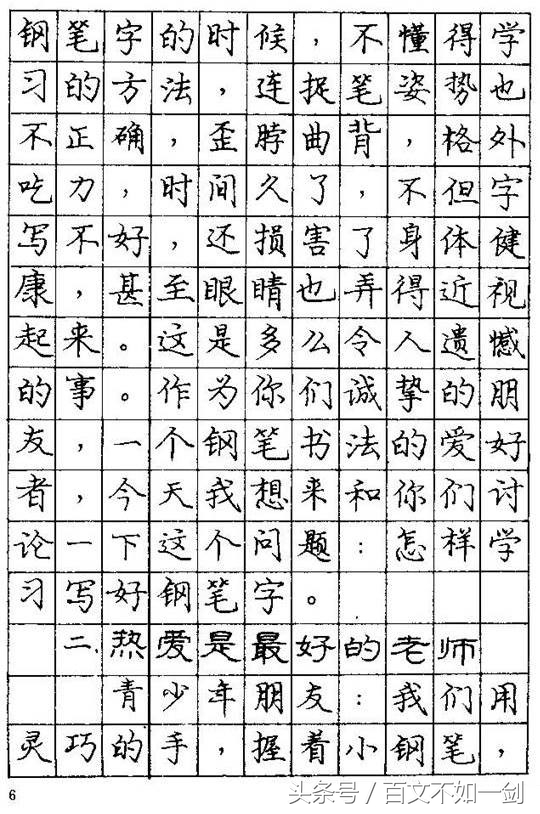 钢笔字的时候，不懂得学
习的方法，连捉笔姿势也
不正确，歪脖曲背，格外
吃力，时间久了，不但字
写不好，还损害了身体健
康，甚至眼睛也弄得近视
起来。这是多么令人遗憾
的事。作为你们诚挚的朋
友，一个钢笔书法的爱好
者，今天我想来和你们讨
论一下这个问题：怎样学
习写好钢笔字。
二、热爱是最好的老师
青少年朋友：我们用
灵巧的手，握着小钢笔，
6
头条号／百文不如一剑